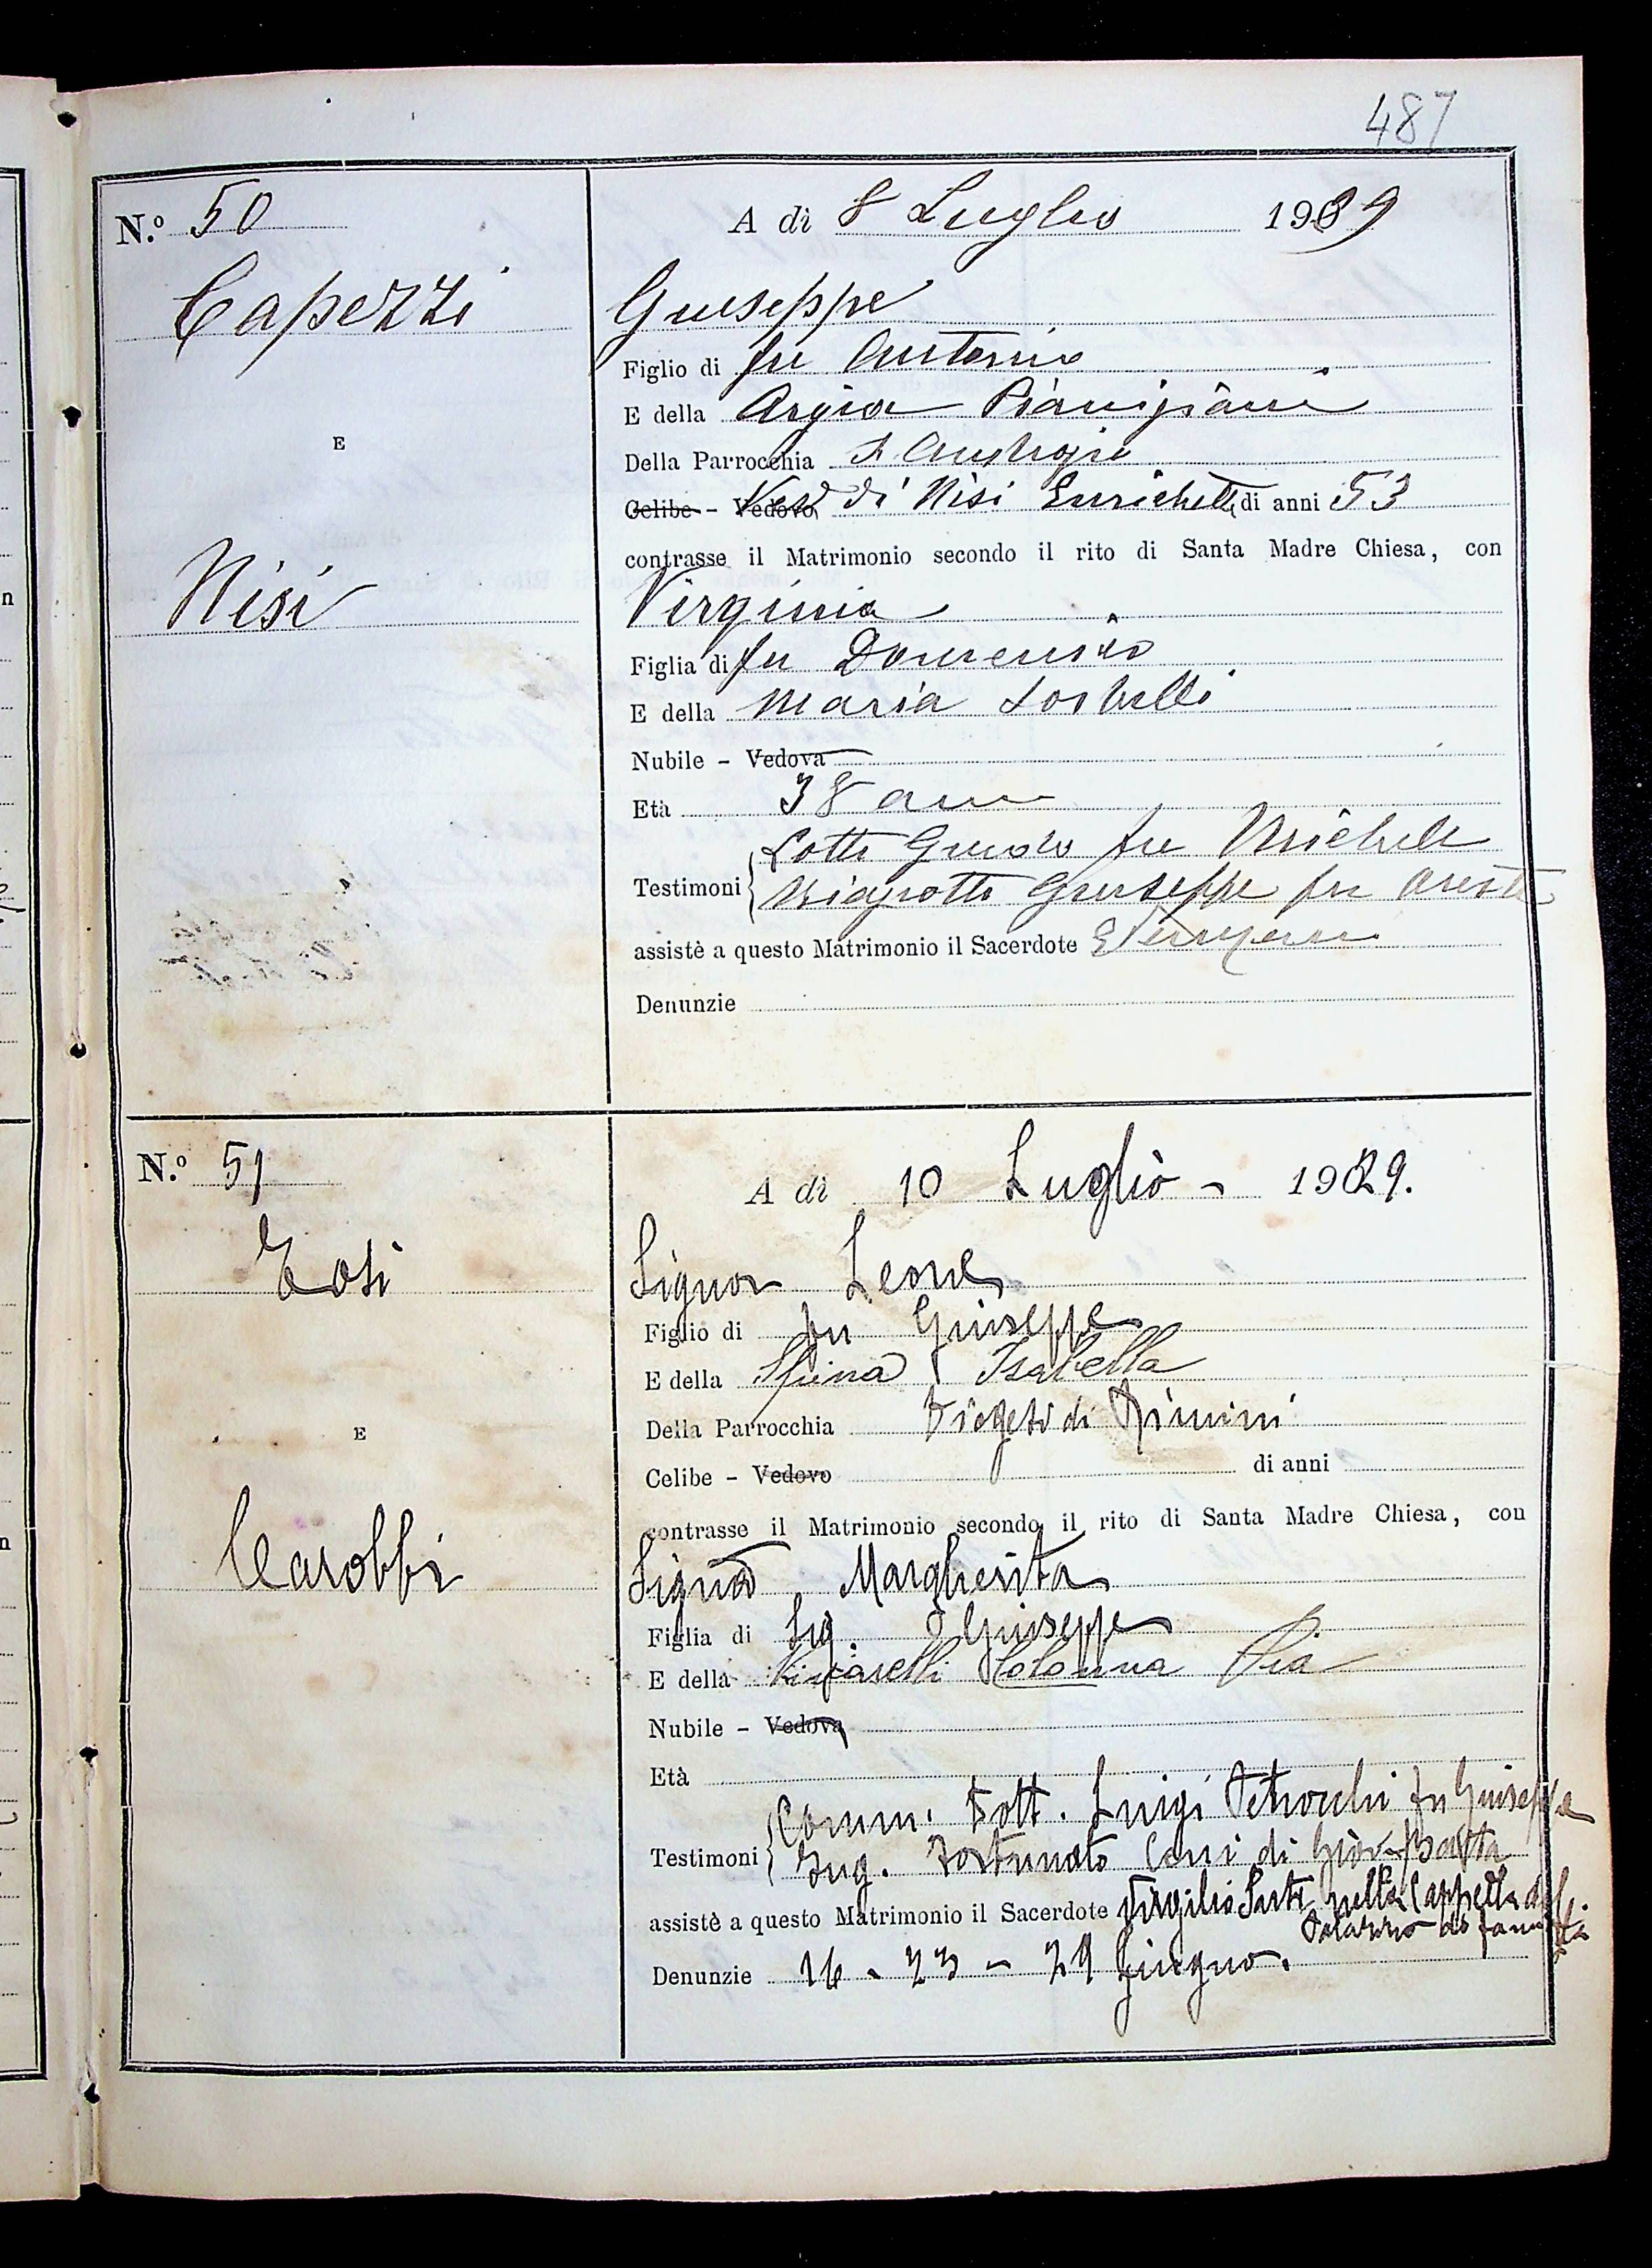 487
N.º 50
A dì 8 Luglio 1929
Capezzi
Giuseppe
Figlio di fu Antonio
E della Argia Pianigiani
Della Parrocchia S. Ambrogio
E
Celibe - Vedovo Ved di Nisi Enrichetta di anni 53
contrasse il Matrimonio secondo il rito di Santa Madre Chiesa, con
Nisi
Virginia
Figlia di fu Domenico
E della Maria
Nubile - Vedova
Età 38 anni
Testimoni Lotti Guido fu Michele
Giuseppe fu Oreste
assistè a questo Matrimonio il Sacerdote
Denunzie
N.º 51
A dì 10 Luglio - 1929.
Tosi
Signor Leone
Figlio di fu Giuseppe
E della Spina Isabella
Della Parrocchia Diogesi di Rimini
E
Celibe - Vedovo di anni
contrasse il Matrimonio secondo il rito di Santa Madre Chiesa, con
Carobbi
Signa Margherita
Figlia di Sig. Giuseppe
E della Colonna Pia
Nubile - Vedova
Età
Testimoni Comm. Dott. Luigi Petrocchi fu Giuseppe
Ing. Fortunato di Giov. Batta
assistè a questo Matrimonio il Sacerdote Virgilio nella Cappella del
Palazzo di famiglia
Denunzie 16 - 23 - 29 Giugno.